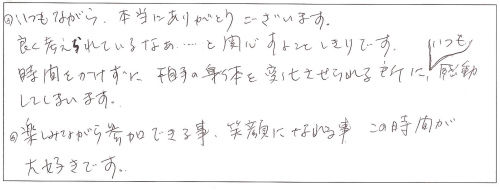 ◎いつもながら、本当にありがとうございます。
良く考えられているなぁ……と関心することしきりです。
時間をかけずに相手の身体を変化させられる所に、いつも感動
してしまいます。
◎楽しみながら参加できる事、笑顔になれる事 この時間が
大好きです。